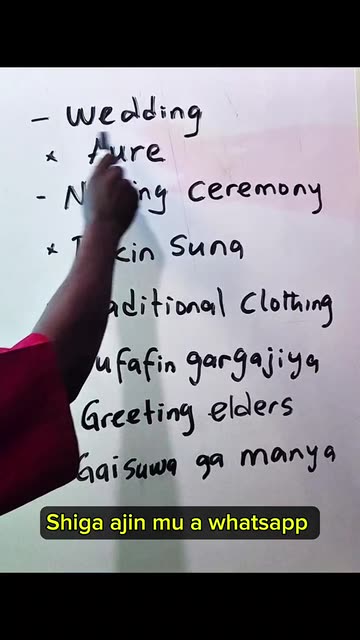 - Wedding
x Aure
- Naming ceremony
x sung
Traditional clothing
gargajiya
Greeting elders
Gaisuwa ga manya
Shiga ajin mu a whatsapp